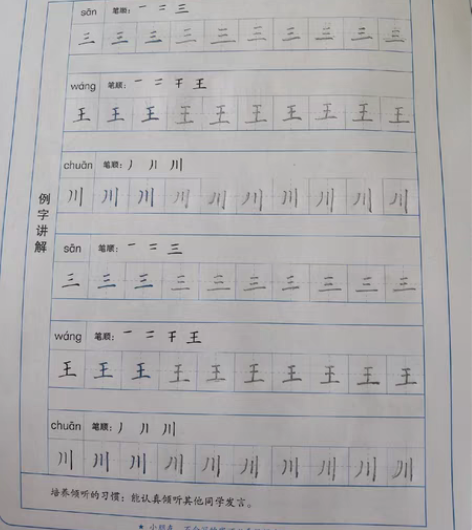 sān 笔顺: 一 二 三
三 三 三 三 三 三 三 三 三 三
wáng 笔顺: 一 二 干 王
王 王 王 王 王 王 王 王 王 王
chuān 笔顺: 丿 丿丨 川
川 川 川 川 川 川 川 川 川 川
例字讲解
sān 笔顺: 一 二 三
三 三 三 三 三 三 三 三 三 三
wáng 笔顺: 一 二 干 王
王 王 王 王 王 王 王 王 王 王
chuān 笔顺: 丿 丿丨 川
川 川 川 川 川 川 川 川 川 川
培养倾听的习惯: 能认真倾听其他同学发言。